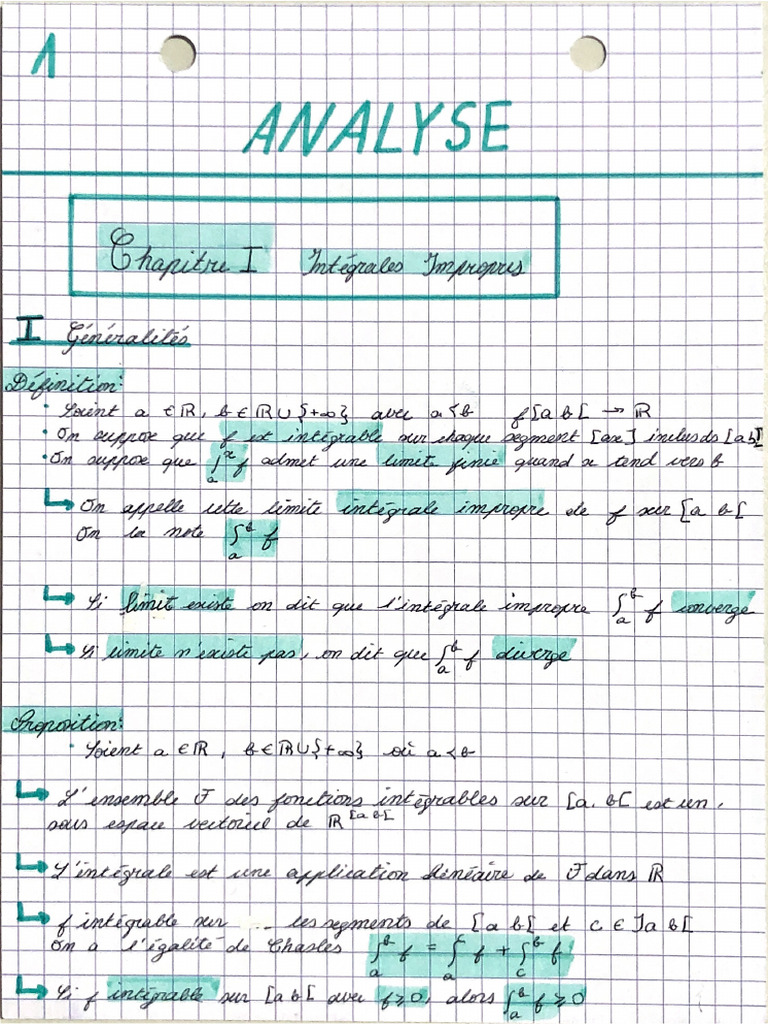 1
ANALYSE
Chapitre I Intégrales Impropres
I Généralités
Définition:
• Soient a ∈ ℝ, b ∈ ℝ ∪ {+∞} avec a < b f [a b[ → ℝ
• On suppose que f est intégrable sur chaque segment [ax] inclus ds [ab[
• On suppose que ∫ₐˣ f admet une limite finie quand x tend vers b
↳ On appelle cette limite intégrale impropre de f sur [a b[
On la note ∫ₐᵇ f
↳ Si limite existe on dit que l'intégrale impropre ∫ₐᵇ f converge
↳ Si limite n'existe pas, on dit que ∫ₐᵇ f diverge
Proposition:
• Soient a ∈ ℝ, b ∈ ℝ ∪ {+∞} où a < b
↳ L'ensemble F des fonctions intégrables sur [a, b[ est un
sous espace vectoriel de ℝ^[a b[
↳ L'intégrale est une application linéaire de F dans ℝ
↳ f intégrable sur les segments de [a b[ et c ∈ ]a b[
On a l'égalité de Chasles ∫ₐᵇ f = ∫ₐᶜ f + ∫꜀ᵇ f
↳ Si f intégrable sur [a b[ avec f ⩾ 0, alors ∫ₐᵇ f ⩾ 0